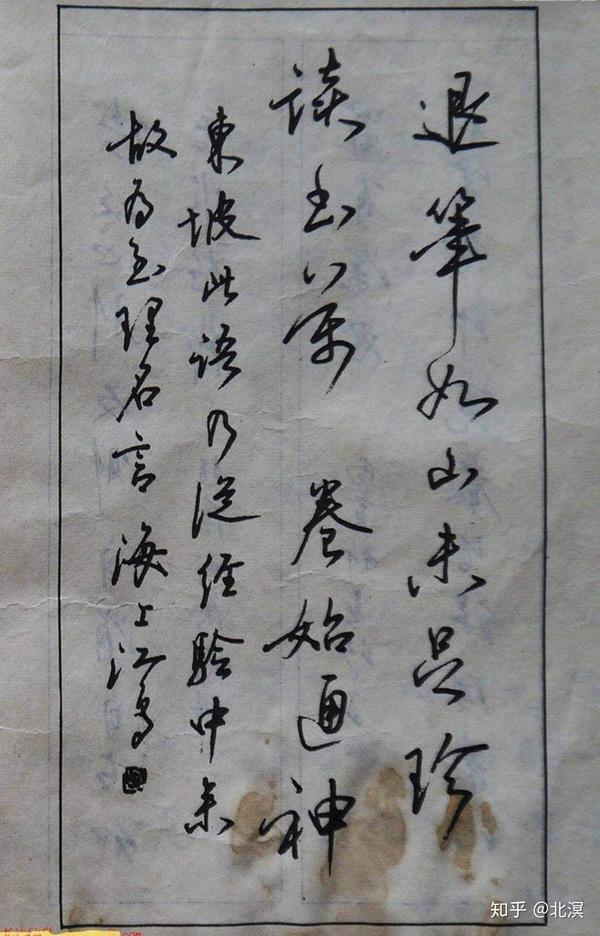 退筆如山未足珍
读书萬卷始通神
東坡此語乃從经驗中来
故为至理名言 海上江
知乎 @北溟